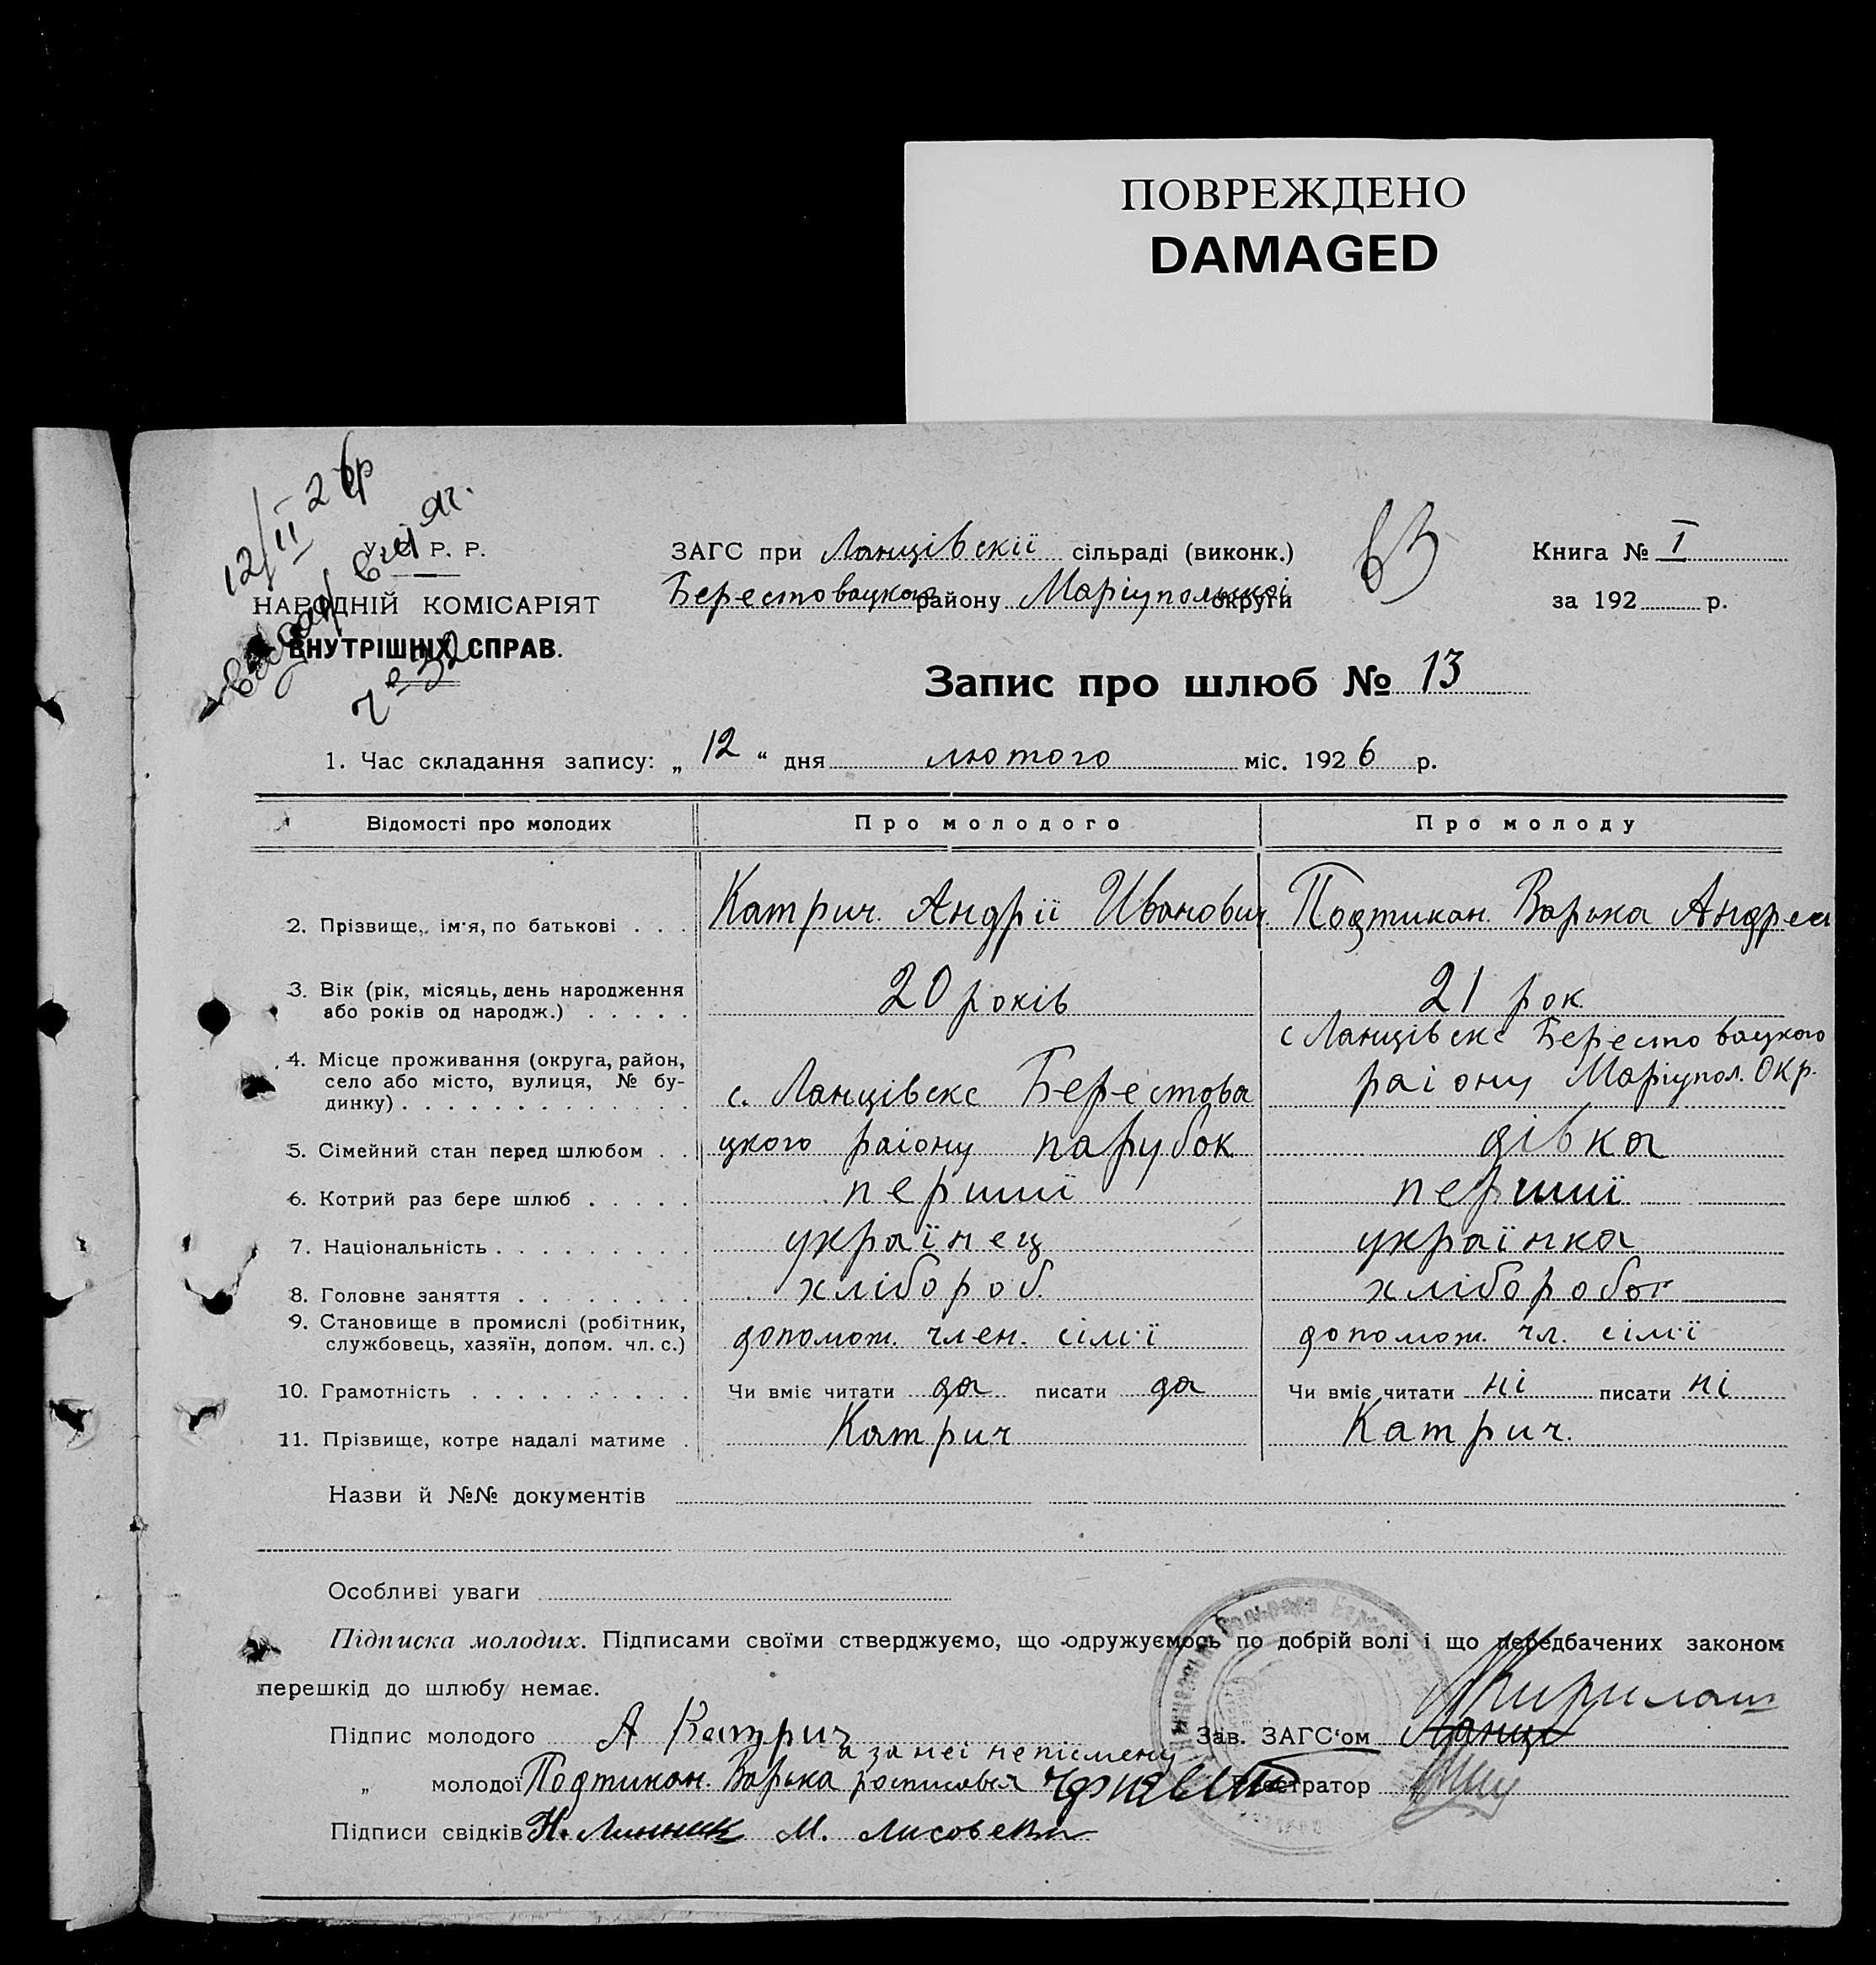 ПОВРЕЖДЕНО
DAMAGED
12/II 26р
У. С. Р. Р.
НАРОДНІЙ КОМІСАРІЯТ
ВНУТРІШНІХ СПРАВ.
ЗАГС при Ланцівскії сільраді (виконк.)
Берестовацкого району Маріупольскої округи
63
Книга № I
за 192 р.
Запис про шлюб № 13
1. Час складання запису: „ 12 “ дня лютого міс. 1926 р.
Відомості про молодих Про молодого Про молоду
2. Прізвище, ім'я, по батькові . . . Катрич. Андрії Иванович. Подтикан. Варька Андреи
3. Вік (рік, місяць, день народження
або років од народж.) . . . . . 20 років 21 рок.
4. Місце проживання (округа, район,
село або місто, вулиця, № бу-
динку) . . . . . . . . . . . . . с. Ланцівске Берестова
с Ланцівске Берестовацкого
раіону Маріупол. Окр.
5. Сімейний стан перед шлюбом . . цкого раіону парубок дівка
6. Котрий раз бере шлюб . . . . . перший перший
7. Національність . . . . . . . . . українец українка
8. Головне заняття . . . . . . . . хлібороб. хлібороб
9. Становище в промислі (робітник,
службовець, хазяїн, допом. чл. с.) допомож. член. сімї допомож. чл. сімї
10. Грамотність . . . . . . . . . . Чи вміє читати да писати да Чи вміє читати ні писати ні
11. Прізвище, котре надалі матиме . Катрич Катрич.
Назви й №№ документів
Особливі уваги
Підписка молодих. Підписами своїми стверджуємо, що одружуємось по добрій волі і що передбачених законом
перешкід до шлюбу немає.
Підпис молодого А Катрич Зав. ЗАГС'ом
а за неї непісмену
„ молодої Подтикан. Варька росписався Реєстратор
Підписи свідків Н. Линник М. Лисовски